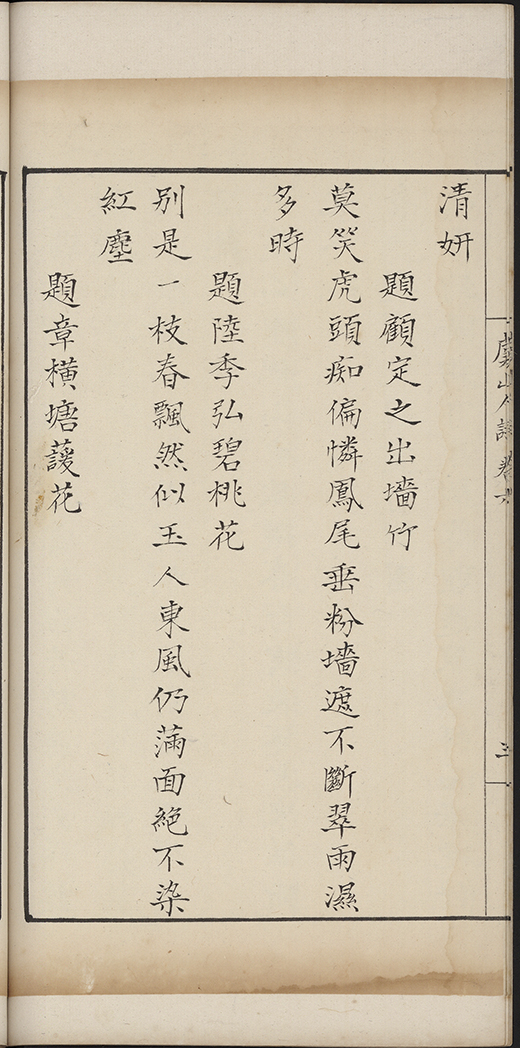 清妍
題顧定之出墻竹
莫笑虎頭痴偏憐鳳尾垂粉墻遮不斷翠雨濕
多時
題陸季弘碧桃花
別是一枝春飄然似玉人東風仍滿面絕不染
紅塵
題章橫塘薐花